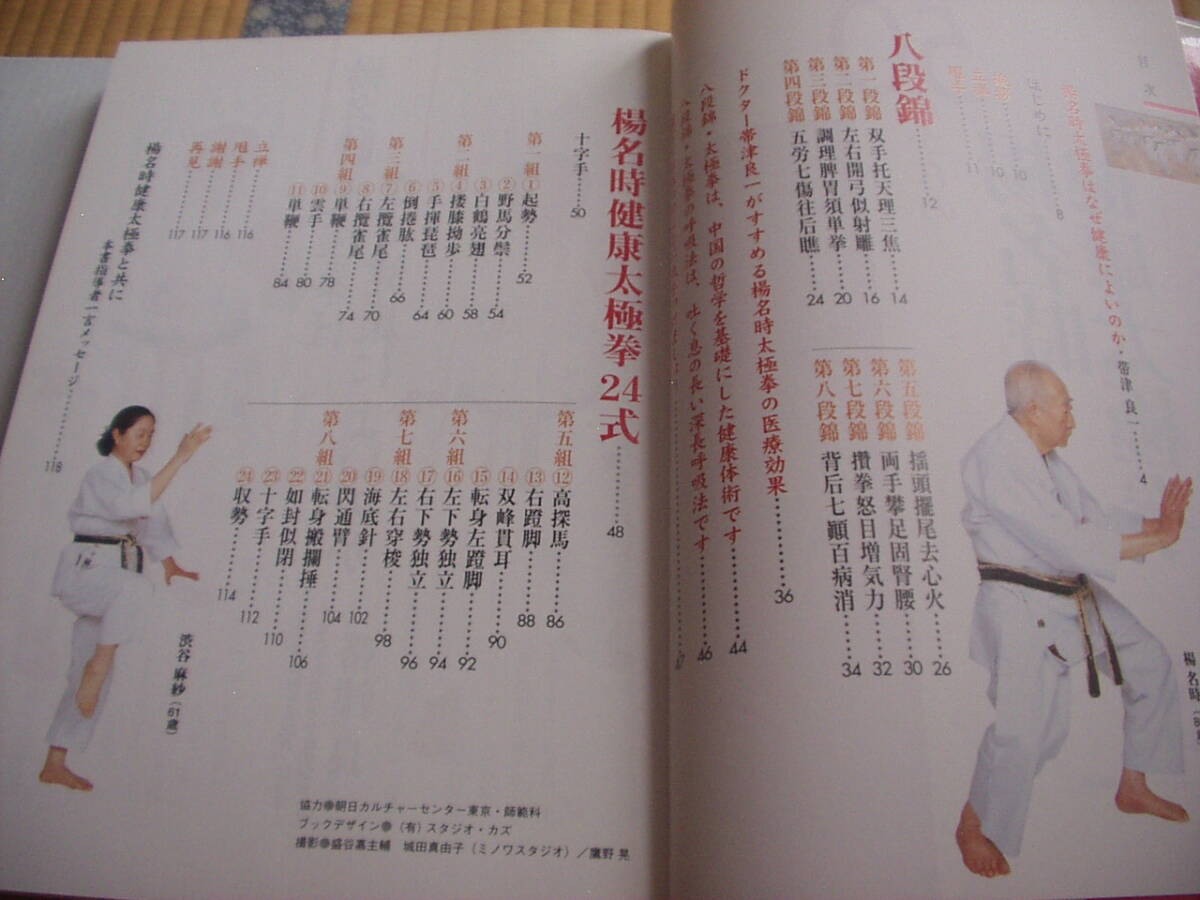 目次
楊名時太極拳はなぜ健康によいのか・帯津良一……4
はじめに……8
10
立禅……10
11
八段錦……12
第一段錦 双手托天理三焦……14
第二段錦 左右開弓似射雕……16
第三段錦 調理脾胃須単挙……20
第四段錦 五労七傷往后瞧……24
第五段錦 揺頭擺尾去心火……26
第六段錦 両手攀足固腎腰……30
第七段錦 攢拳怒目増気力……32
第八段錦 背后七顚百病消……34
ドクター帯津良一がすすめる楊名時太極拳の医療効果……36
八段錦・太極拳は、中国の哲学を基礎にした健康体術です……44
八段錦・太極拳の呼吸法は、吐く息の長い深長呼吸法です……46
47
楊名時健康太極拳24式……48
十字手……50
第一組 ①起勢……52
②野馬分鬃……54
③白鶴亮翅……58
第二組 ④搂膝拗歩……60
⑤手揮琵琶……64
⑥倒捲肱……66
第三組 ⑦左攬雀尾……70
⑧右攬雀尾……74
第四組 ⑨単鞭……78
⑩雲手……80
⑪単鞭……84
第五組 ⑫高探馬……86
⑬右蹬脚……88
⑭双峰貫耳……90
⑮転身左蹬脚……92
第六組 ⑯左下勢独立……94
⑰右下勢独立……96
第七組 ⑱左右穿梭……98
⑲海底針……102
⑳閃通臂……104
第八組 ㉑転身搬攔捶……106
㉒如封似閉……110
㉓十字手……112
㉔収勢……114
立禅……116
甩手……116
謝謝……117
再見……117
楊名時健康太極拳と共に
本書指導者一言メッセージ……118
渋谷麻紗(61歳)
楊名時
協力●朝日カルチャーセンター東京・師範科
ブックデザイン●(有)スタジオ・カズ
撮影●盛谷嘉主輔 城田真由子(ミノワスタジオ)/鷹野 晃